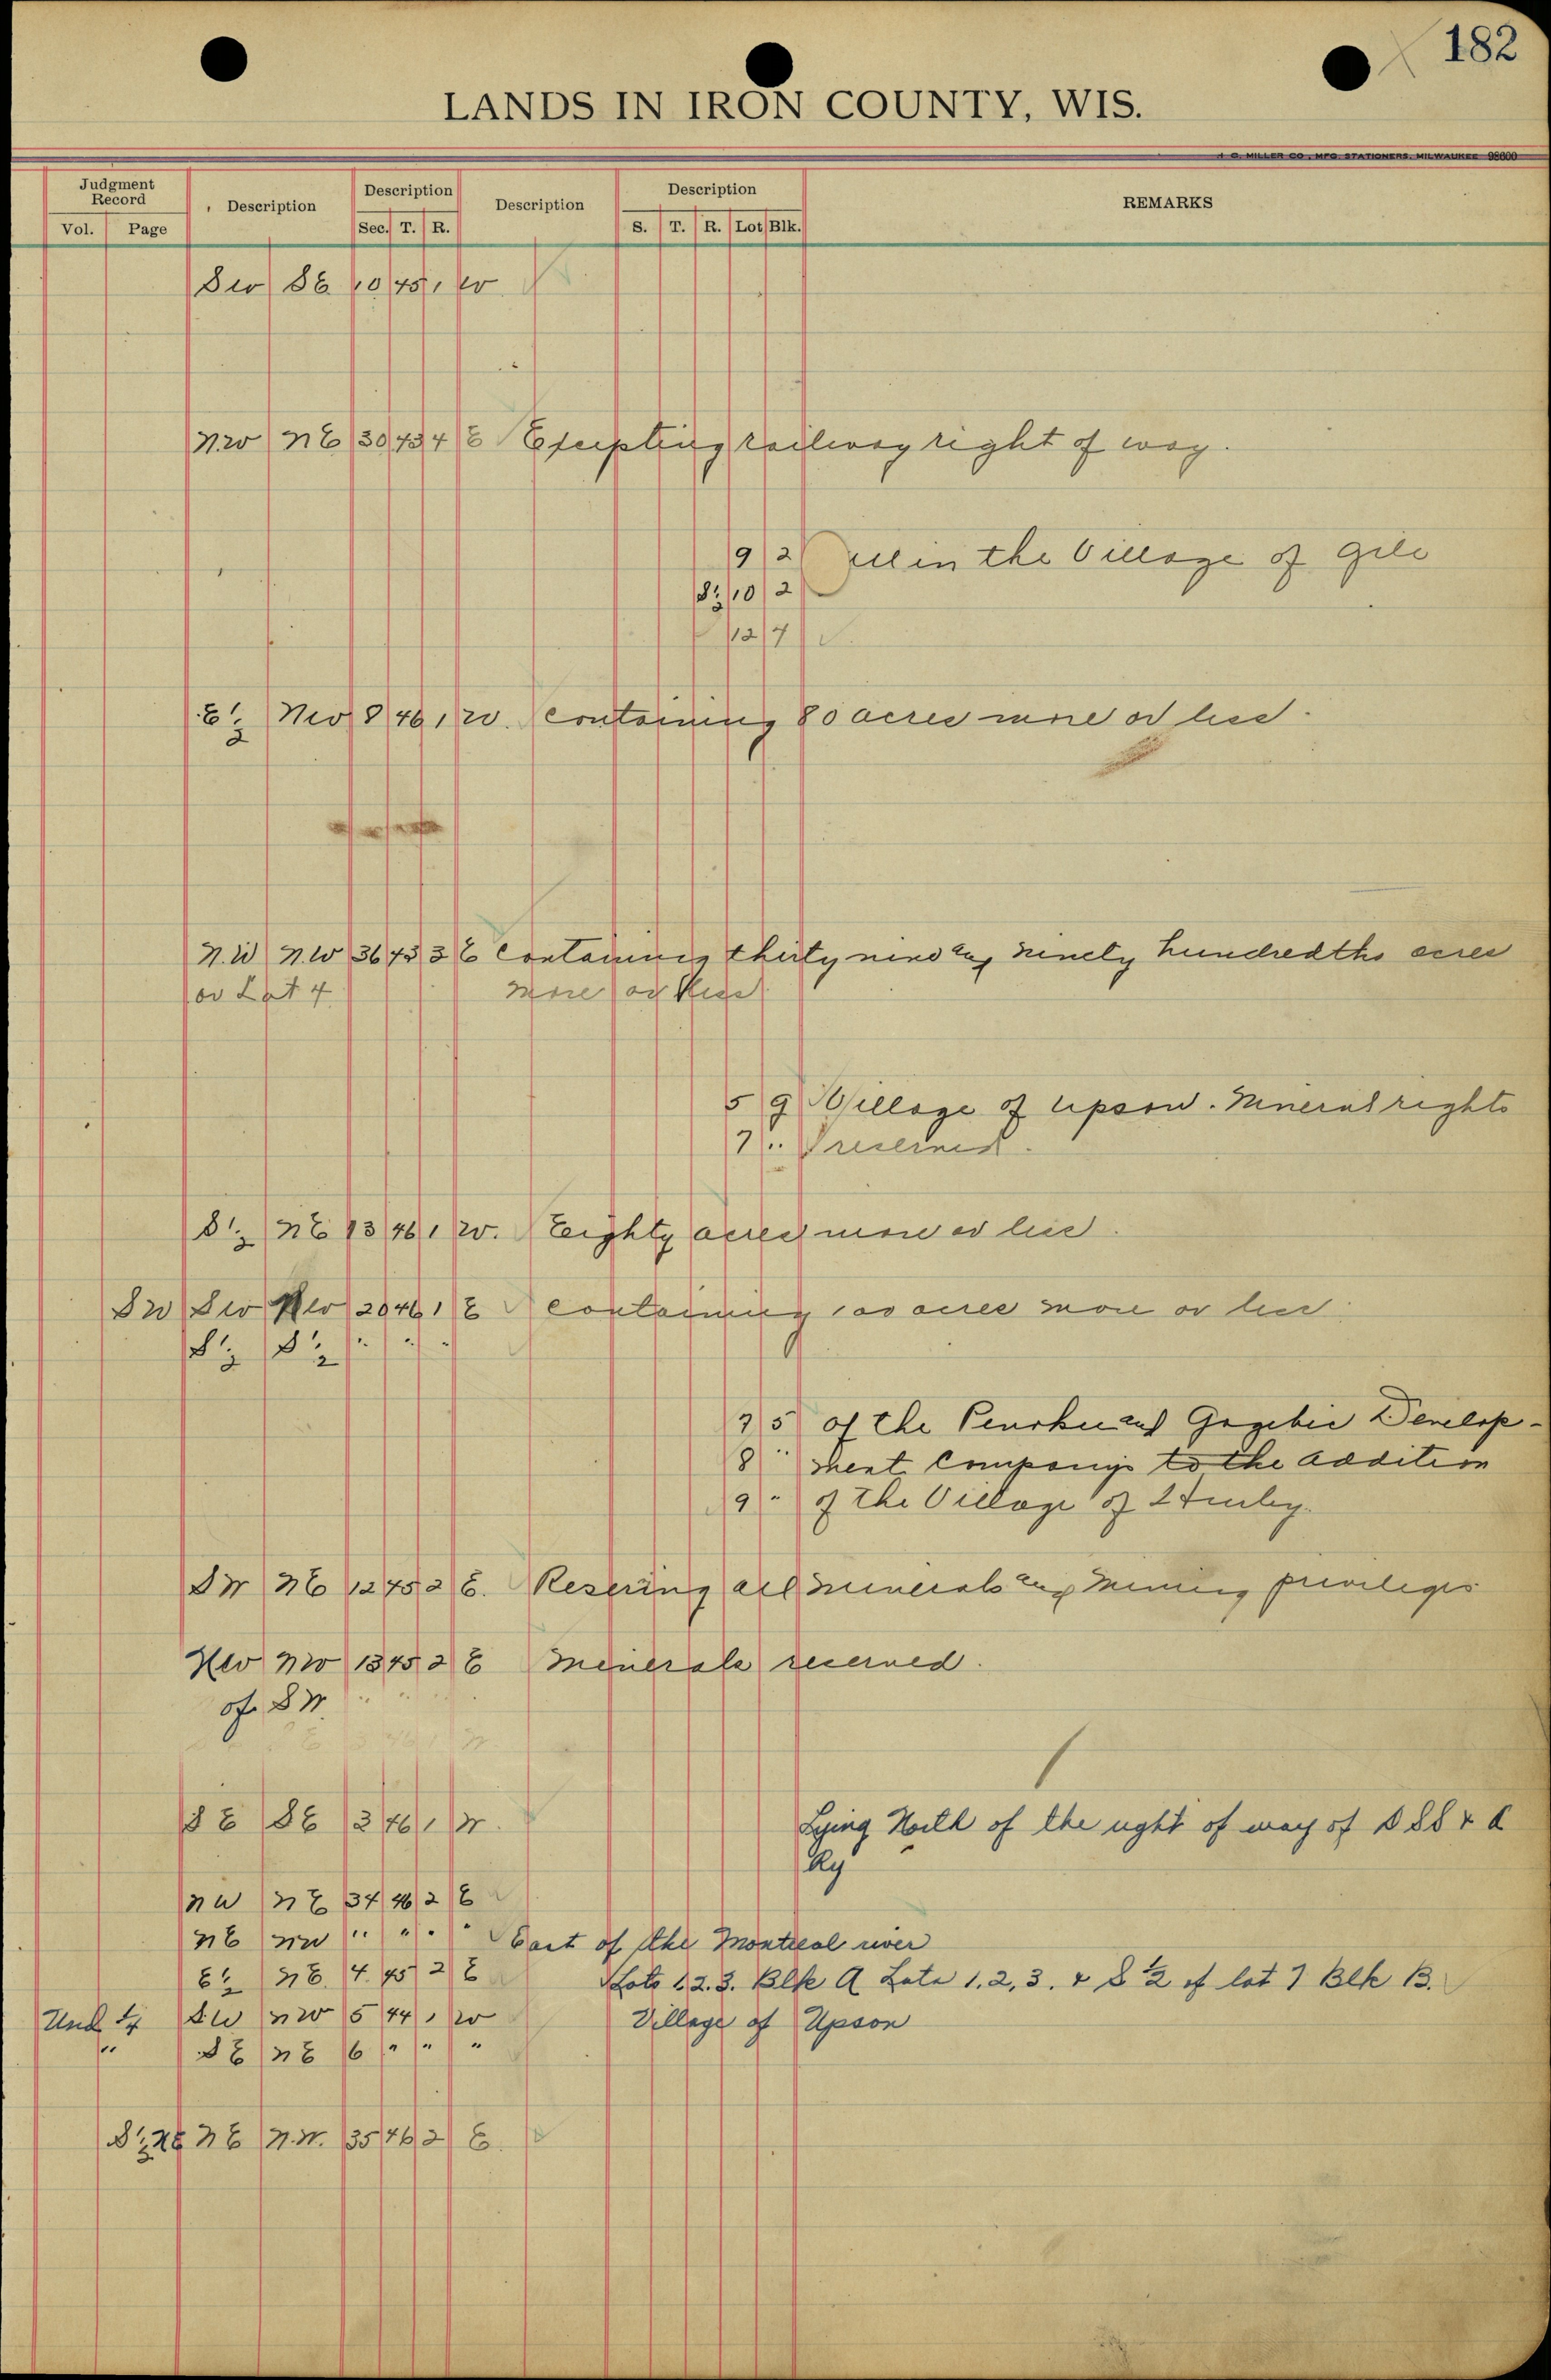 182
LANDS IN IRON COUNTY, WIS.
H. C. MILLER CO., MFG. STATIONERS, MILWAUKEE 98600
Judgment Record Description Description Description Description REMARKS
Vol. Page Sec. T. R. S. T. R. Lot Blk.
SW SE 10 45 1 W
NW NE 30 45 4 E Excepting railway right of way.
9 2 all in the Village of Gile
S½ 10 2
12 7
E½ NW 8 46 1 W. Containing 80 acres more or less.
N.W N.W 36 45 3 E Containing thirty nine and ninety hundredths acres
or Lot 4 more or less
5 9 Village of Upson. Mineral rights
7 " reserved.
S½ NE 13 46 1 W. Eighty acres more or less.
SW SW NW 20 46 1 E Containing acres more or less.
S½ S½ " " "
7 5 of the and Gogebic Develop-
8 " ment Companys to the addition
9 " of the Village of Hurley.
SW NE 12 45 2 E. Reserving all minerals and mining privileges
NW NW 13 45 2 E Minerals reserved.
of SW " "
SE SE 3 46 1 W. Lying North of the right of way of D S S & A
Ry
NW NE 34 46 2 E
NE NW " " " " East of the Montreal river
E½ NE. 4. 45 2 E Lots 1. 2. 3. Blk A Lots 1, 2, 3. & S ½ of lot 7 Blk B.
Und ¼ SW NW 5 44 1 W Village of Upson
" SE NE 6 " " "
S½ NE NE N.W. 35 46 2 E.